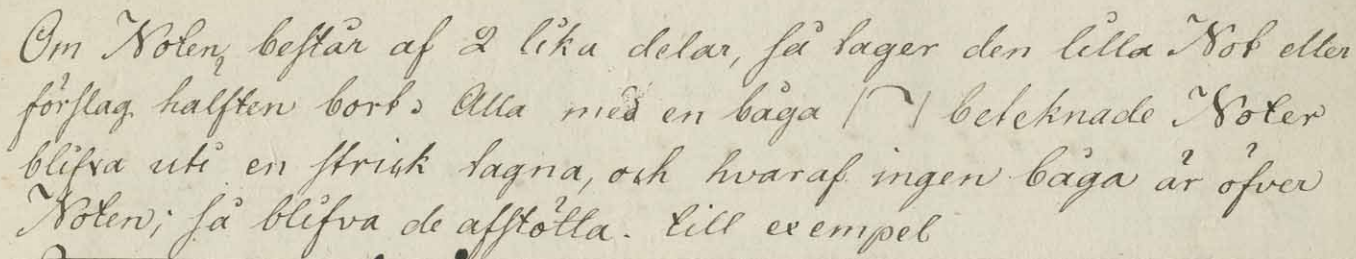 Om Noten, består af 2 lika delar, så tager den lilla Not eller
förslag halften bort. Alla med en båga (⌒) beteknade Noter
blifva uti en strick tagna, och hvaraf ingen båga är öfver
Noten; så blifva de afstötta. till exempel